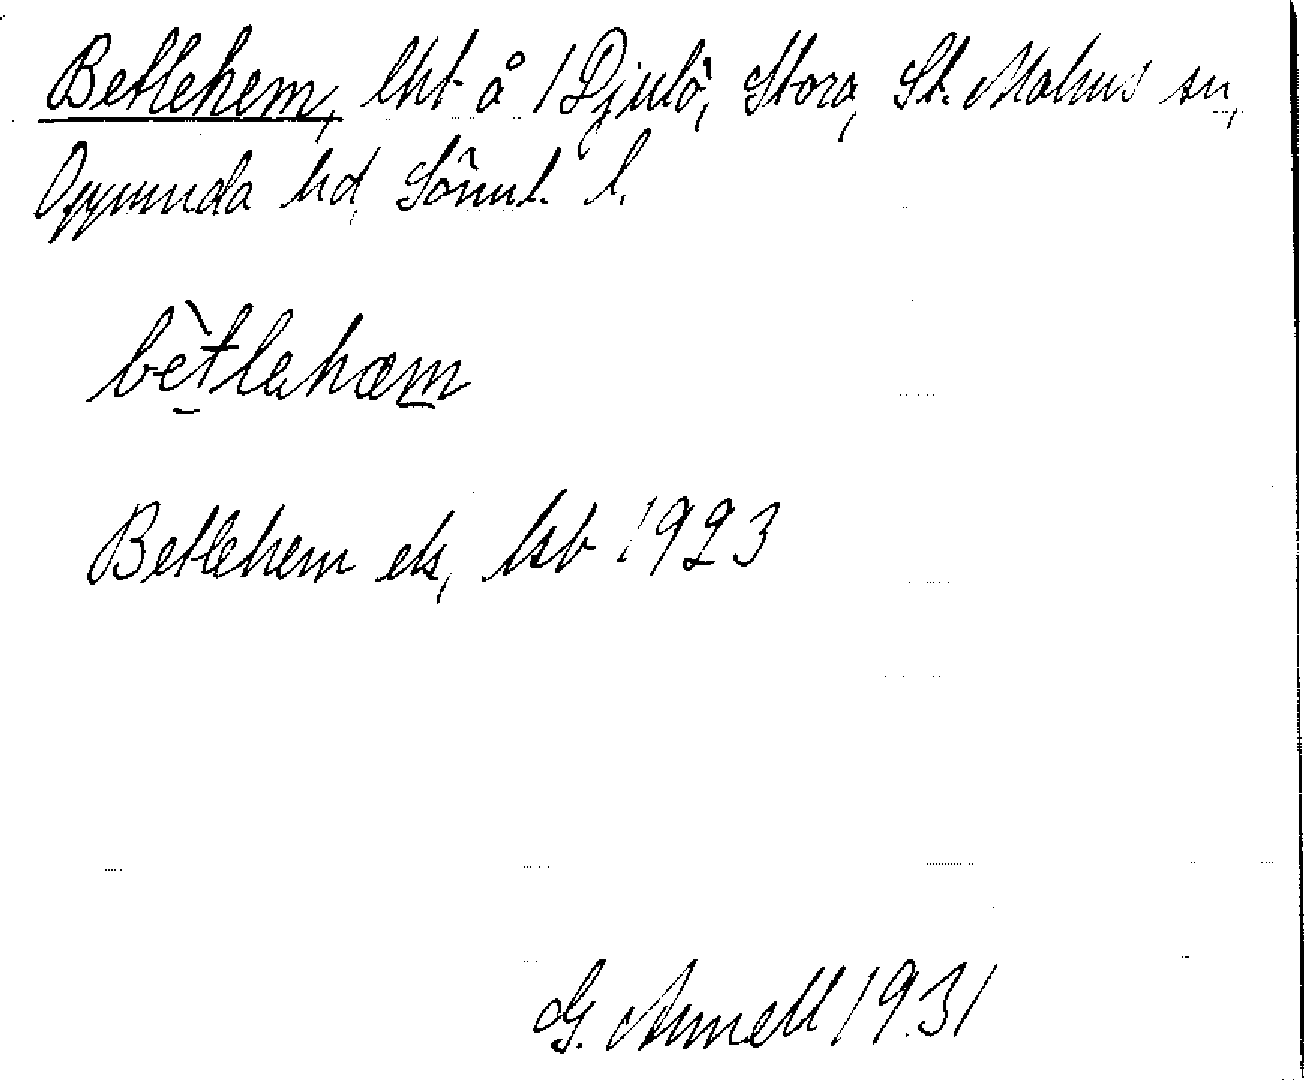 Betlehem, lht å 1 Djulö, Stora, St. Malms sn,
Oppunda hd, Sörml. l.
bètlehæm
Betlehem ek, lsb 1923
G. Arnell 1931